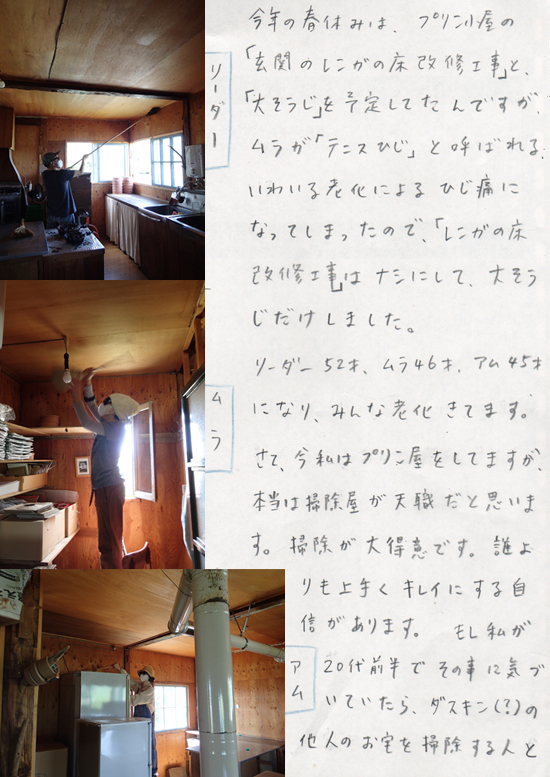 今年の春休みは、プリン小屋の
「玄関のレンガの床改修工事」と、
「大そうじ」を予定してたんですが、
ムラが「テニスひじ」と呼ばれる、
いわいる老化によるひじ痛に
なってしまったので、「レンガの床
改修工事」はナシにして、大そう
じだけしました。
リーダー52才、ムラ46才、アム45才
になり、みんな老化きてます。
さて、今私はプリン屋をしてますが、
本当は掃除屋が天職だと思いま
す。掃除が大得意です。誰よ
りも上手くキレイにする自
信があります。 もし私が
20代前半でその事に気づ
いていたら、ダスキン(?)の
他人のお宅を掃除する人と
リーダー
ムラ
アム